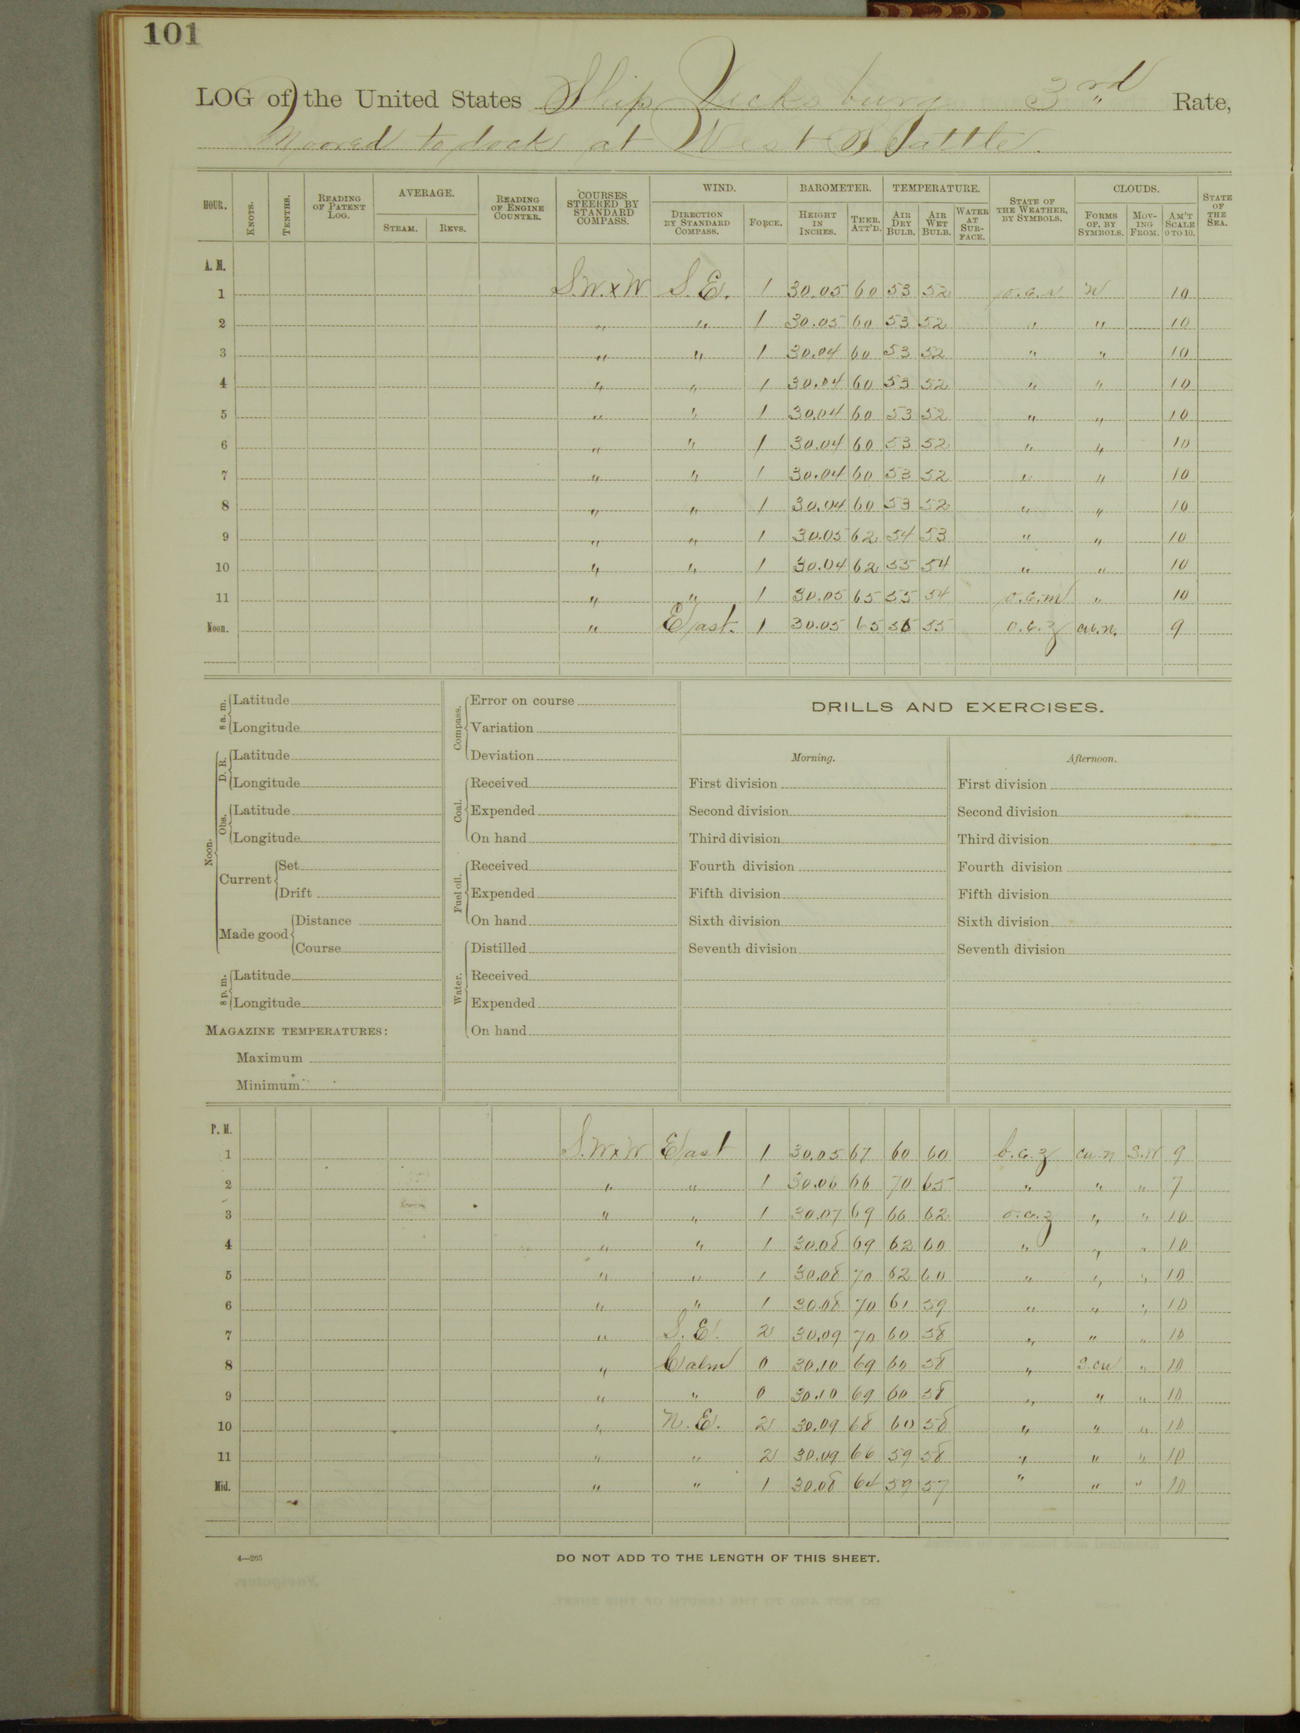 101
LOG of the United States Ship Vicksburg 3rd Rate,
Moored to dock at West Seattle.
HOUR. KNOTS. TENTHS. READING OF PATENT LOG. AVERAGE. STEAM. REVS. READING OF ENGINE COUNTER. COURSES STEERED BY STANDARD COMPASS. WIND. DIRECTION BY STANDARD COMPASS. FORCE. BAROMETER. HEIGHT IN INCHES. THER. ATT'D. TEMPERATURE. AIR DRY BULB. AIR WET BULB. WATER AT SURFACE. STATE OF THE WEATHER, BY SYMBOLS. CLOUDS. FORMS OF, BY SYMBOLS. MOVING FROM. AM'T SCALE 0 TO 10. STATE OF THE SEA.
A. M.
1 S.W.xW S.E. 1 30.05 60 53 52 N 10
2 " " 1 30.05 60 53 52 " " 10
3 " " 1 30.04 60 53 52 " " 10
4 " " 1 30.04 60 53 52 " " 10
5 " " 1 30.04 60 53 52 " " 10
6 " " 1 30.04 60 53 52 " " 10
7 " " 1 30.04 60 53 52 " " 10
8 " " 1 30.04 60 53 52 " " 10
9 " " 1 30.05 62 54 53 " " 10
10 " " 1 30.04 62 55 54 " " 10
11 " " 1 30.05 65 55 54 o.c.m " 10
Noon. " East. 1 30.05 65 56 55 o.c.z cu.n. 9
8 a. m. Latitude
Longitude
Noon. D. R. Latitude
Longitude
Obs. Latitude
Longitude
Current Set
Drift
Made good Distance
Course
8 p. m. Latitude
Longitude
MAGAZINE TEMPERATURES:
Maximum
Minimum
Compass. Error on course
Variation
Deviation
Coal. Received
Expended
On hand
Fuel oil. Received
Expended
On hand
Water. Distilled
Received
Expended
On hand
DRILLS AND EXERCISES.
Morning. Afternoon.
First division First division
Second division Second division
Third division Third division
Fourth division Fourth division
Fifth division Fifth division
Sixth division Sixth division
Seventh division Seventh division
P. M.
1 S.WxW East 1 30.05 67 60 60 b.c.z cu.n S.W 9
2 " " 1 30.06 66 70 65 " " " 7
3 " " 1 30.07 69 66 62 o.c.z " " 10
4 " " 1 30.08 69 62 60 " " " 10
5 " " 1 30.08 70 62 60 " " " 10
6 " " 1 30.08 70 61 59 " " " 10
7 " S.E. 2 30.09 70 60 58 " " " 10
8 " Calm 0 30.10 69 60 58 " S.cu " 10
9 " " 0 30.10 69 60 58 " " " 10
10 " N.E. 2 30.09 68 60 58 " " " 10
11 " " 2 30.09 66 59 58 " " " 10
Mid. " " 1 30.08 64 59 57 " " " 10
4—265 DO NOT ADD TO THE LENGTH OF THIS SHEET.